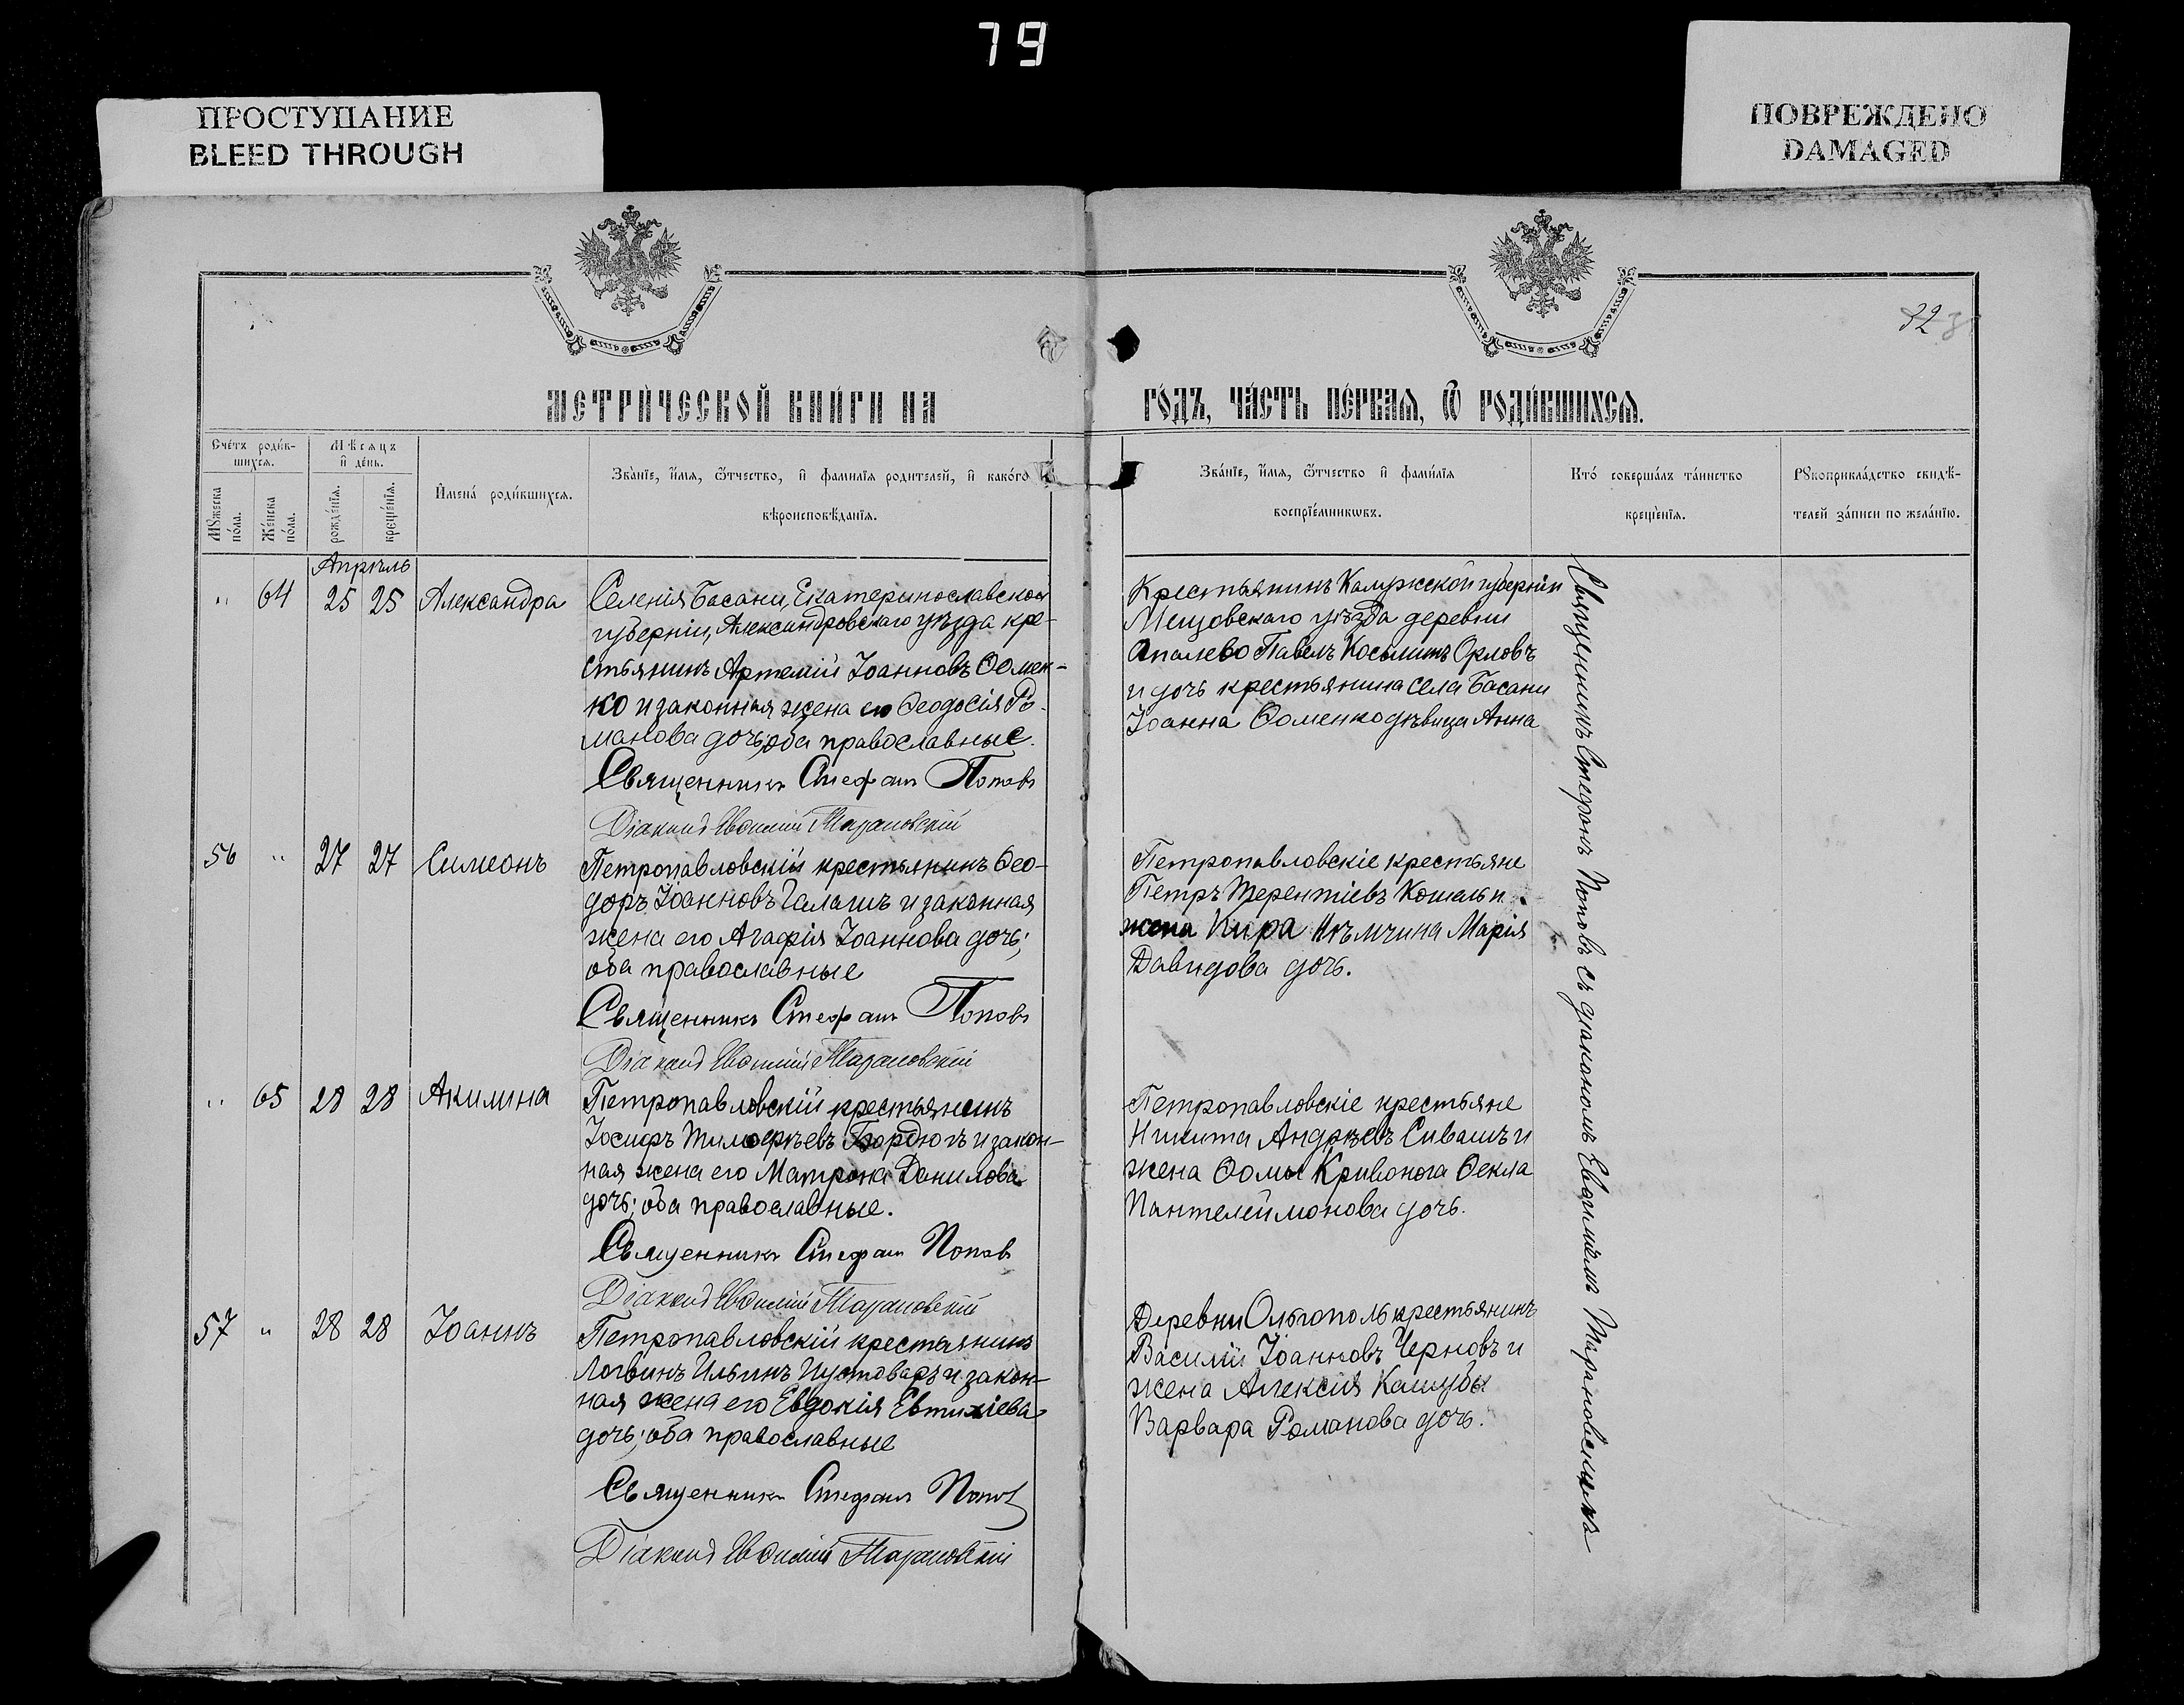 79
ПРОСТУПАНИЕ
BLEED THROUGH
ПОВРЕЖДЕНО
DAMAGED
32
МЕТРИ́ЧЕСКОЙ КНИ́ГИ НА
ГО́ДЪ, ЧА́СТЬ ПЕ́РВАѦ, Ѿ РОДИ́ВШИХСѦ.
Сче́тъ роди́в-
шихсѧ.
Мѣсѧцъ
и де́нь.
Мꙋжеска
по́ла.
Же́нска
по́ла.
рожде́нїѧ.
креще́нїѧ.
Имена̀ роди́вшихсѧ.
Зва́нїе, и́мѧ, ѻ҆́тчество, и фами́лїѧ родителей, и како́го
вѣроисповѣ́данїѧ.
Зва́нїе, и́мѧ, ѻ҆́тчество и фами́лїѧ
воспрїе́мникѡвъ.
Кто́ соверша́лъ та́инство
креще́нїѧ.
Рꙋкоприкла́дство свидѣ́-
телей за́писи по жела́нїю.
Апрѣль
" 64 25 25 Александра
Селенія Басани, Екатеринославской
губерніи, Александровскаго уѣзда кре-
стьянинъ Артемій Іоанновъ Ѳомен-
ко и законная жена его Ѳеодосія Ро-
манова дочь, оба православные.
Священникъ Стефанъ Поповъ
Діаконъ Евѳимій Тарановскій
Крестьянинъ Калужской губерніи
Мещовскаго уѣзда деревни
Апалево Павелъ Косьминъ Орловъ
и дочь крестьянина села Басани
Іоанна Ѳоменко дѣвица Анна
56 " 27 27 Симеонъ
Петропавловскій крестьянинъ Ѳео-
доръ Іоанновъ Галашъ и законная
жена его Агафія Іоаннова дочь;
оба православные
Священникъ Стефанъ Поповъ
Діаконъ Евѳимій Тарановскій
Петропавловскіе крестьяне
Петръ Терентіевъ Кошель и
жена Кира Нѣмчина Марія
Давидова дочь.
" 65 28 28 Акилина
Петропавловскій крестьянинъ
Іосифъ Тимофѣевъ Бордюгъ и закон-
ная жена его Матрона Данилова
дочь; оба православные.
Священникъ Стефанъ Поповъ
Діаконъ Евѳимій Тарановскій
Петропавловскіе крестьяне
Никита Андрѣевъ Сивашъ и
жена Ѳомы Кривонога Ѳекла
Пантелеймонова дочь.
57 " 28 28 Іоаннъ
Петропавловскій крестьянинъ
Логвинъ Ильинъ Пустоваръ и закон-
ная жена его Евдокія Евтихіева
дочь; оба православные
Священникъ Стефанъ Поповъ
Діаконъ Евѳимій Тарановскій
Деревни Ольгополь крестьянинъ
Василій Іоанновъ Черновъ и
жена Алексія Кашубы
Варвара Романова дочь.
Священникъ Стефанъ Поповъ съ діакономъ Евѳиміемъ Тарановскимъ